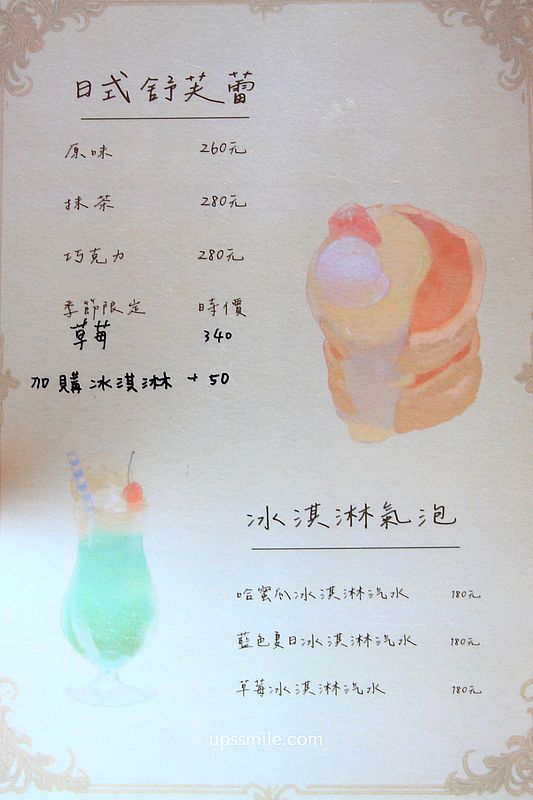 日式舒芙蕾
原味 260元
抹茶 280元
巧克力 280元
季節限定 時價
草莓 340
加購冰淇淋 +50
冰淇淋氣泡
哈蜜瓜冰淇淋汽水 180元
藍色夏日冰淇淋汽水 180元
草莓冰淇淋汽水 180元
upssmile.com